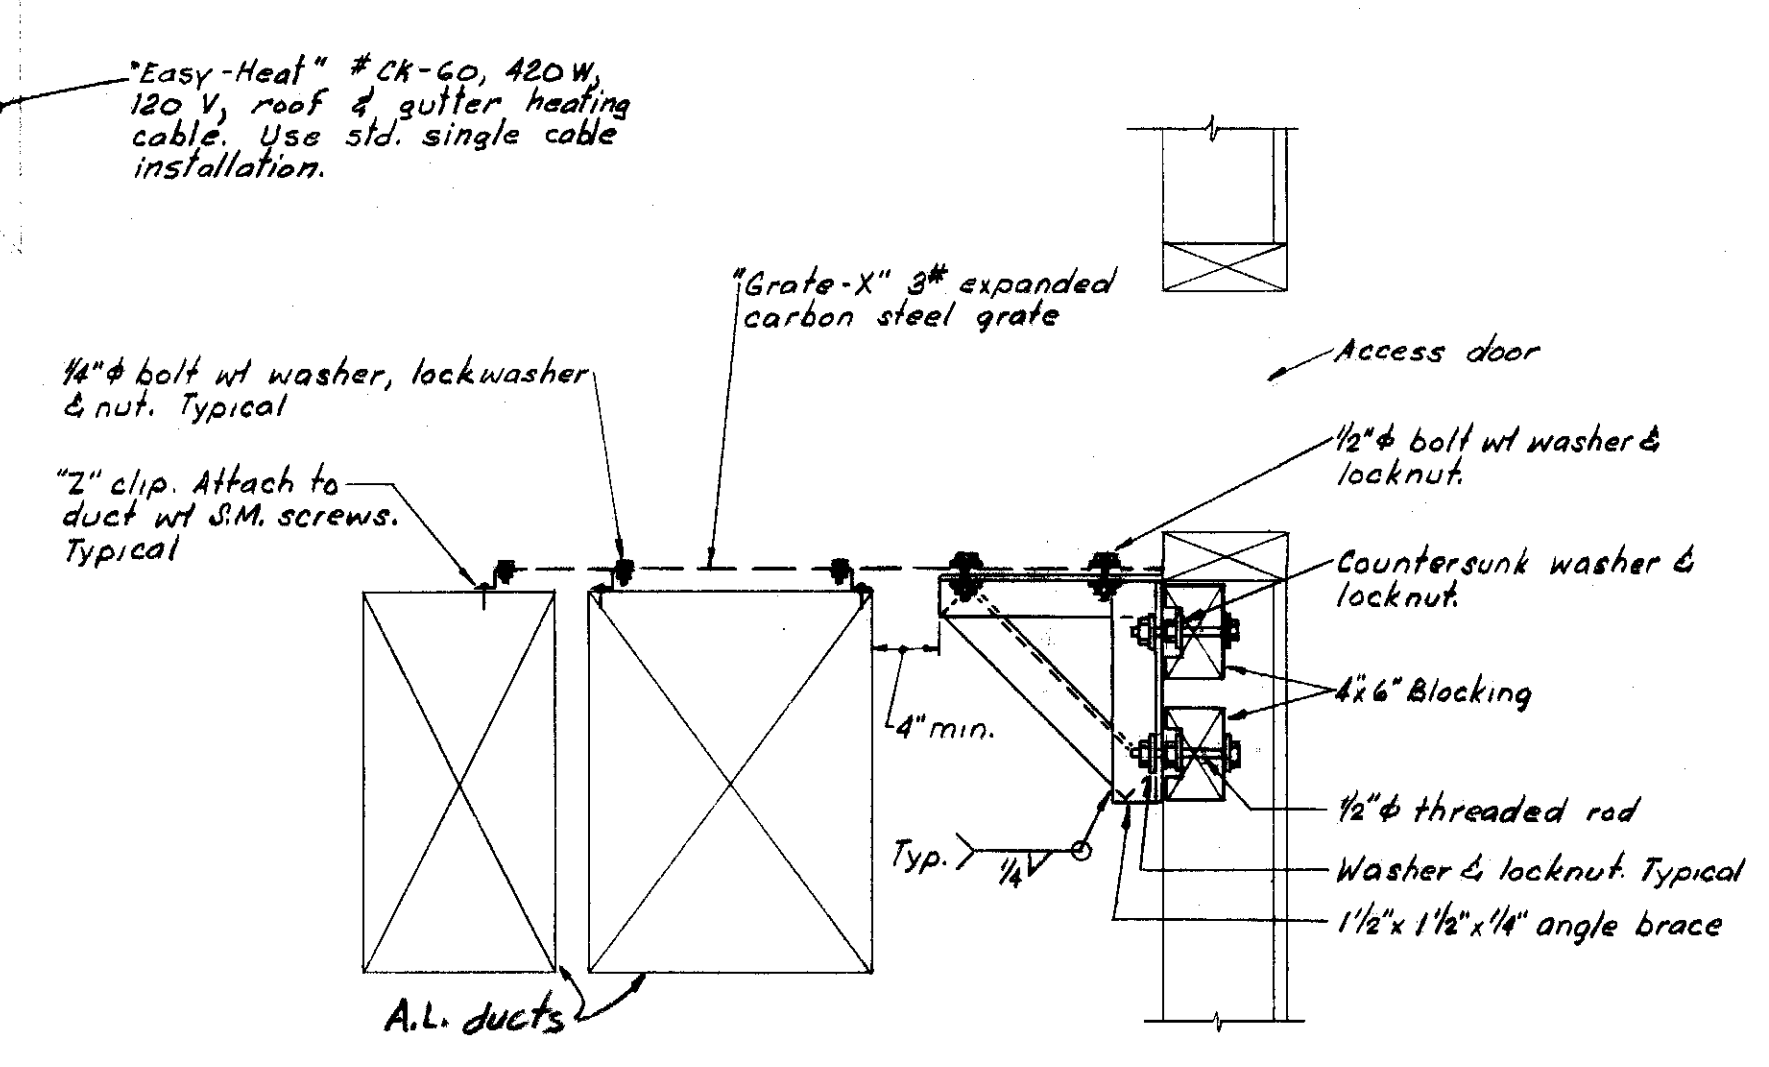 "Easy-Heat" # CK-60, 420 W,
120 V, roof & gutter heating
cable. Use std. single cable
installation.
"Grate-X" 3# expanded
carbon steel grate
1/4"ϕ bolt w/ washer, lockwasher
& nut. Typical
"Z" clip. Attach to
duct w/ S.M. screws.
Typical
Access door
1/2"ϕ bolt w/ washer &
locknut.
Countersunk washer &
locknut.
4"x 6" Blocking
4" min.
1/2"ϕ threaded rod
Typ.
1/4
Washer & locknut. Typical
1 1/2" x 1 1/2" x 1/4" angle brace
A.L. ducts